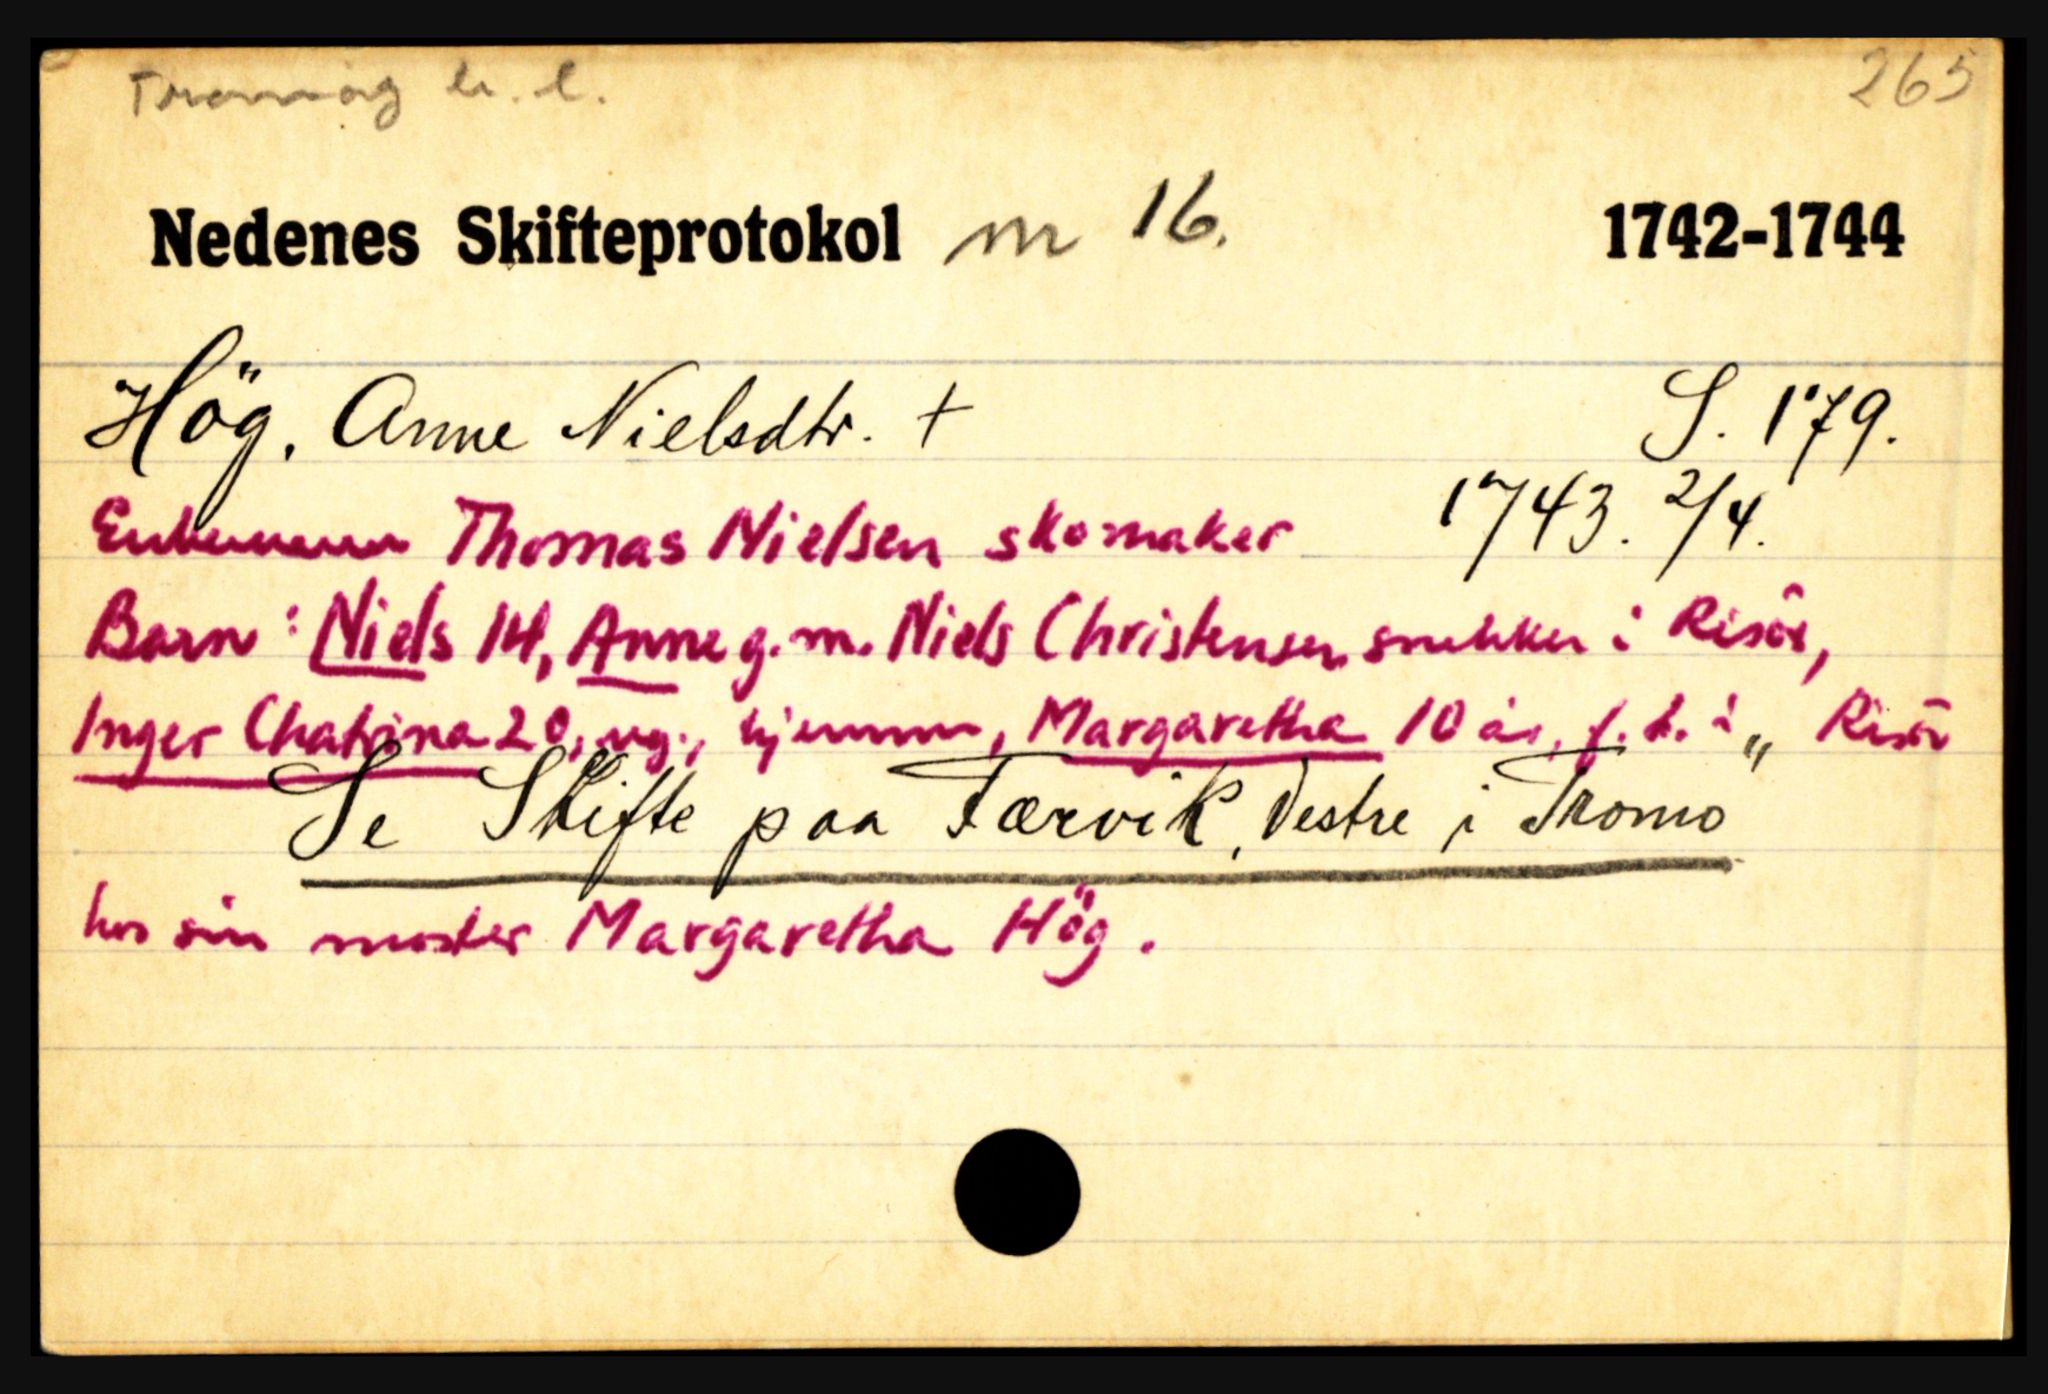 265
Nedenes Skifteprotokol nr 16. 1742-1744
Hög, Anne Nielsdtr. + S. 179.
Enkemann Thomas Nielsen skomaker 1743. 2/4.
Barn: Niels 14, Anne g. m. Niels Christensen snekker i Risör,
Inger Chatrina 20, ug., hjemme, Margaretha 10 år, f. t. i „ Risör
Se Skifte paa Færvik, Vestre i Tromo
hos sin moster Margaretha Hög.